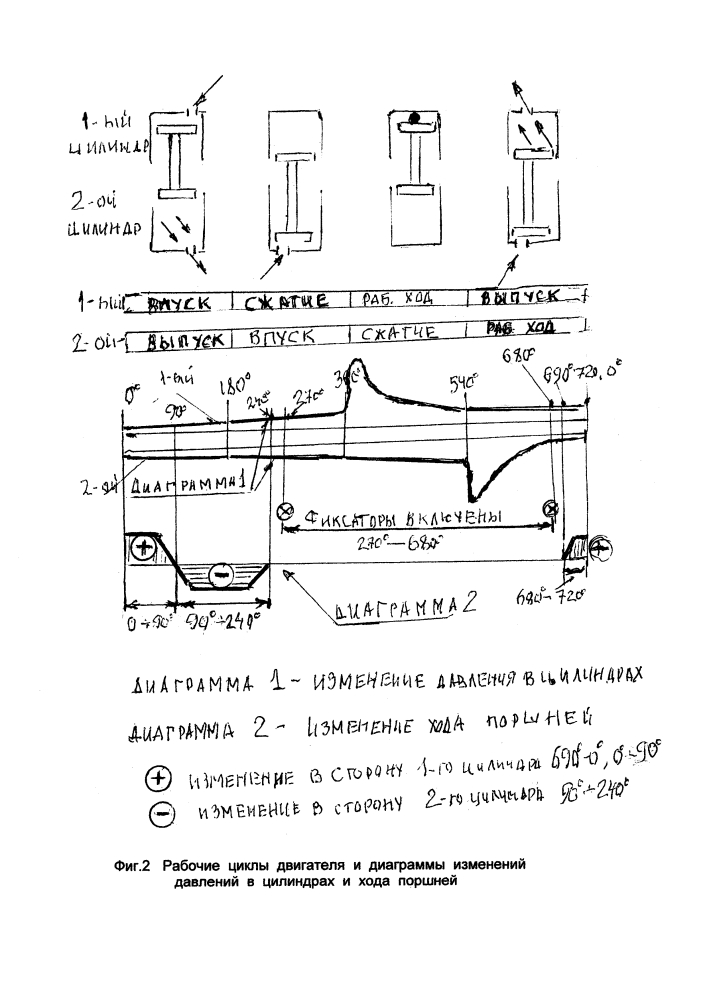 1-ый
цилиндр
2-ой
цилиндр
1-ый ВПУСК СЖАТИЕ РАБ. ХОД ВЫПУСК
2-ой ВЫПУСК ВПУСК СЖАТИЕ РАБ. ХОД
0° 90° 1-ый 180° 240° 270° 540° 680° 690° 720, 0°
2-ой ДИАГРАММА 1
ФИКСАТОРЫ ВКЛЮЧЕНЫ
270° — 680°
+ − +
ДИАГРАММА 2
0÷90° 90°÷240° 680°- 720°
ДИАГРАММА 1 - ИЗМЕНЕНИЕ ДАВЛЕНИЯ В ЦИЛИНДРАХ
ДИАГРАММА 2 - ИЗМЕНЕНИЕ ХОДА ПОРШНЕЙ
+ ИЗМЕНЕНИЕ В СТОРОНУ 1-го цилиндра 690°-0°, 0°÷90°
− ИЗМЕНЕНИЕ В СТОРОНУ 2-го цилиндра 90°÷240°
Фиг.2 Рабочие циклы двигателя и диаграммы изменений
давлений в цилиндрах и хода поршней